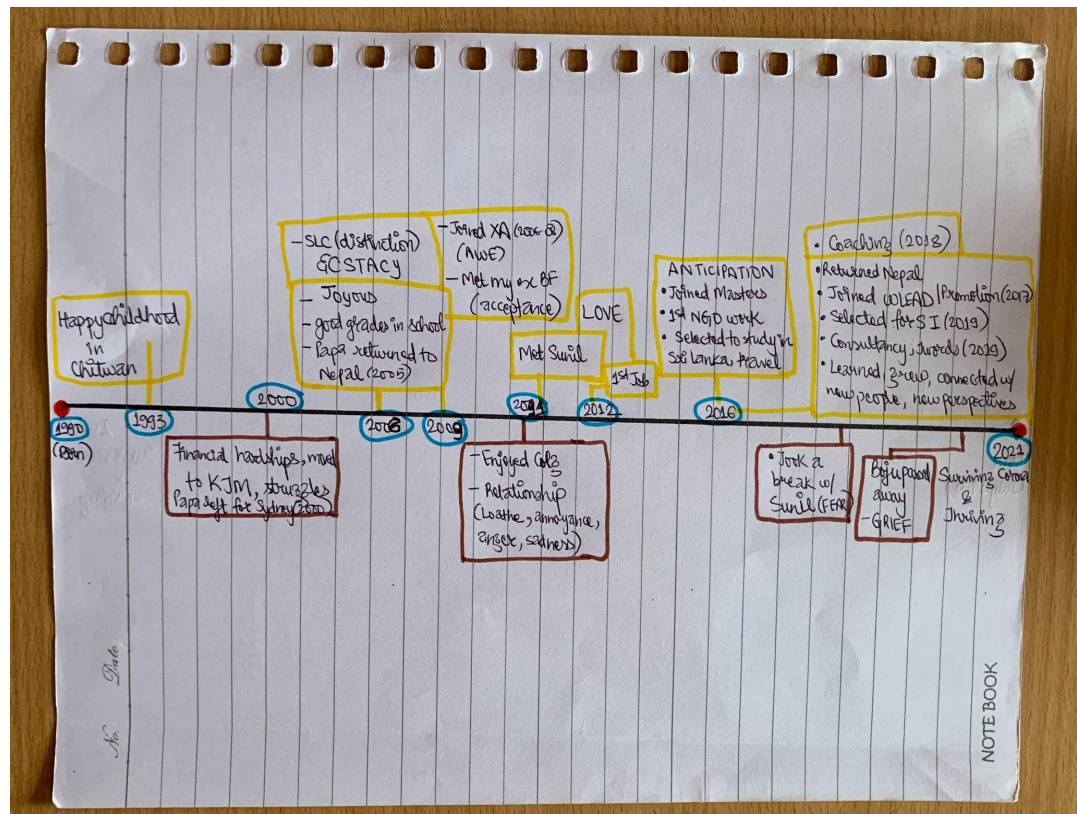 Happy childhood
in
Chitwan
- SLC (distinction)
ECSTACY
- Joyous
- good grades in school
- Papa returned to
Nepal (2005)
- Joined XA (2006-08)
(AWE)
- Met my ex BF
(acceptance)
Met Sunil
LOVE
1st Job
ANTICIPATION
• Joined Masters
• 1st NGO work
• Selected to study in
Sri Lanka, travel
• Coaching (2018)
• Returned Nepal
• Joined WOLEAD / Promotion (2017)
• Selected for S I (2019)
• Consultancy, Awards (2019)
• Learned, grew, connected w/
new people, new perspectives
1990
(Born)
1993
2000
2006
2009
2011
2012
2016
2021
Financial hardships, moved
to KTM, struggles
Papa left for Sydney (2000)
- Enjoyed Colg
- Relationship
(Loathe, annoyance,
anger, sadness)
• Took a
break w/
Sunil (FEAR)
Boju passed
away
- GRIEF
Surviving Corona
&
Thriving
No.
Date
NOTE BOOK